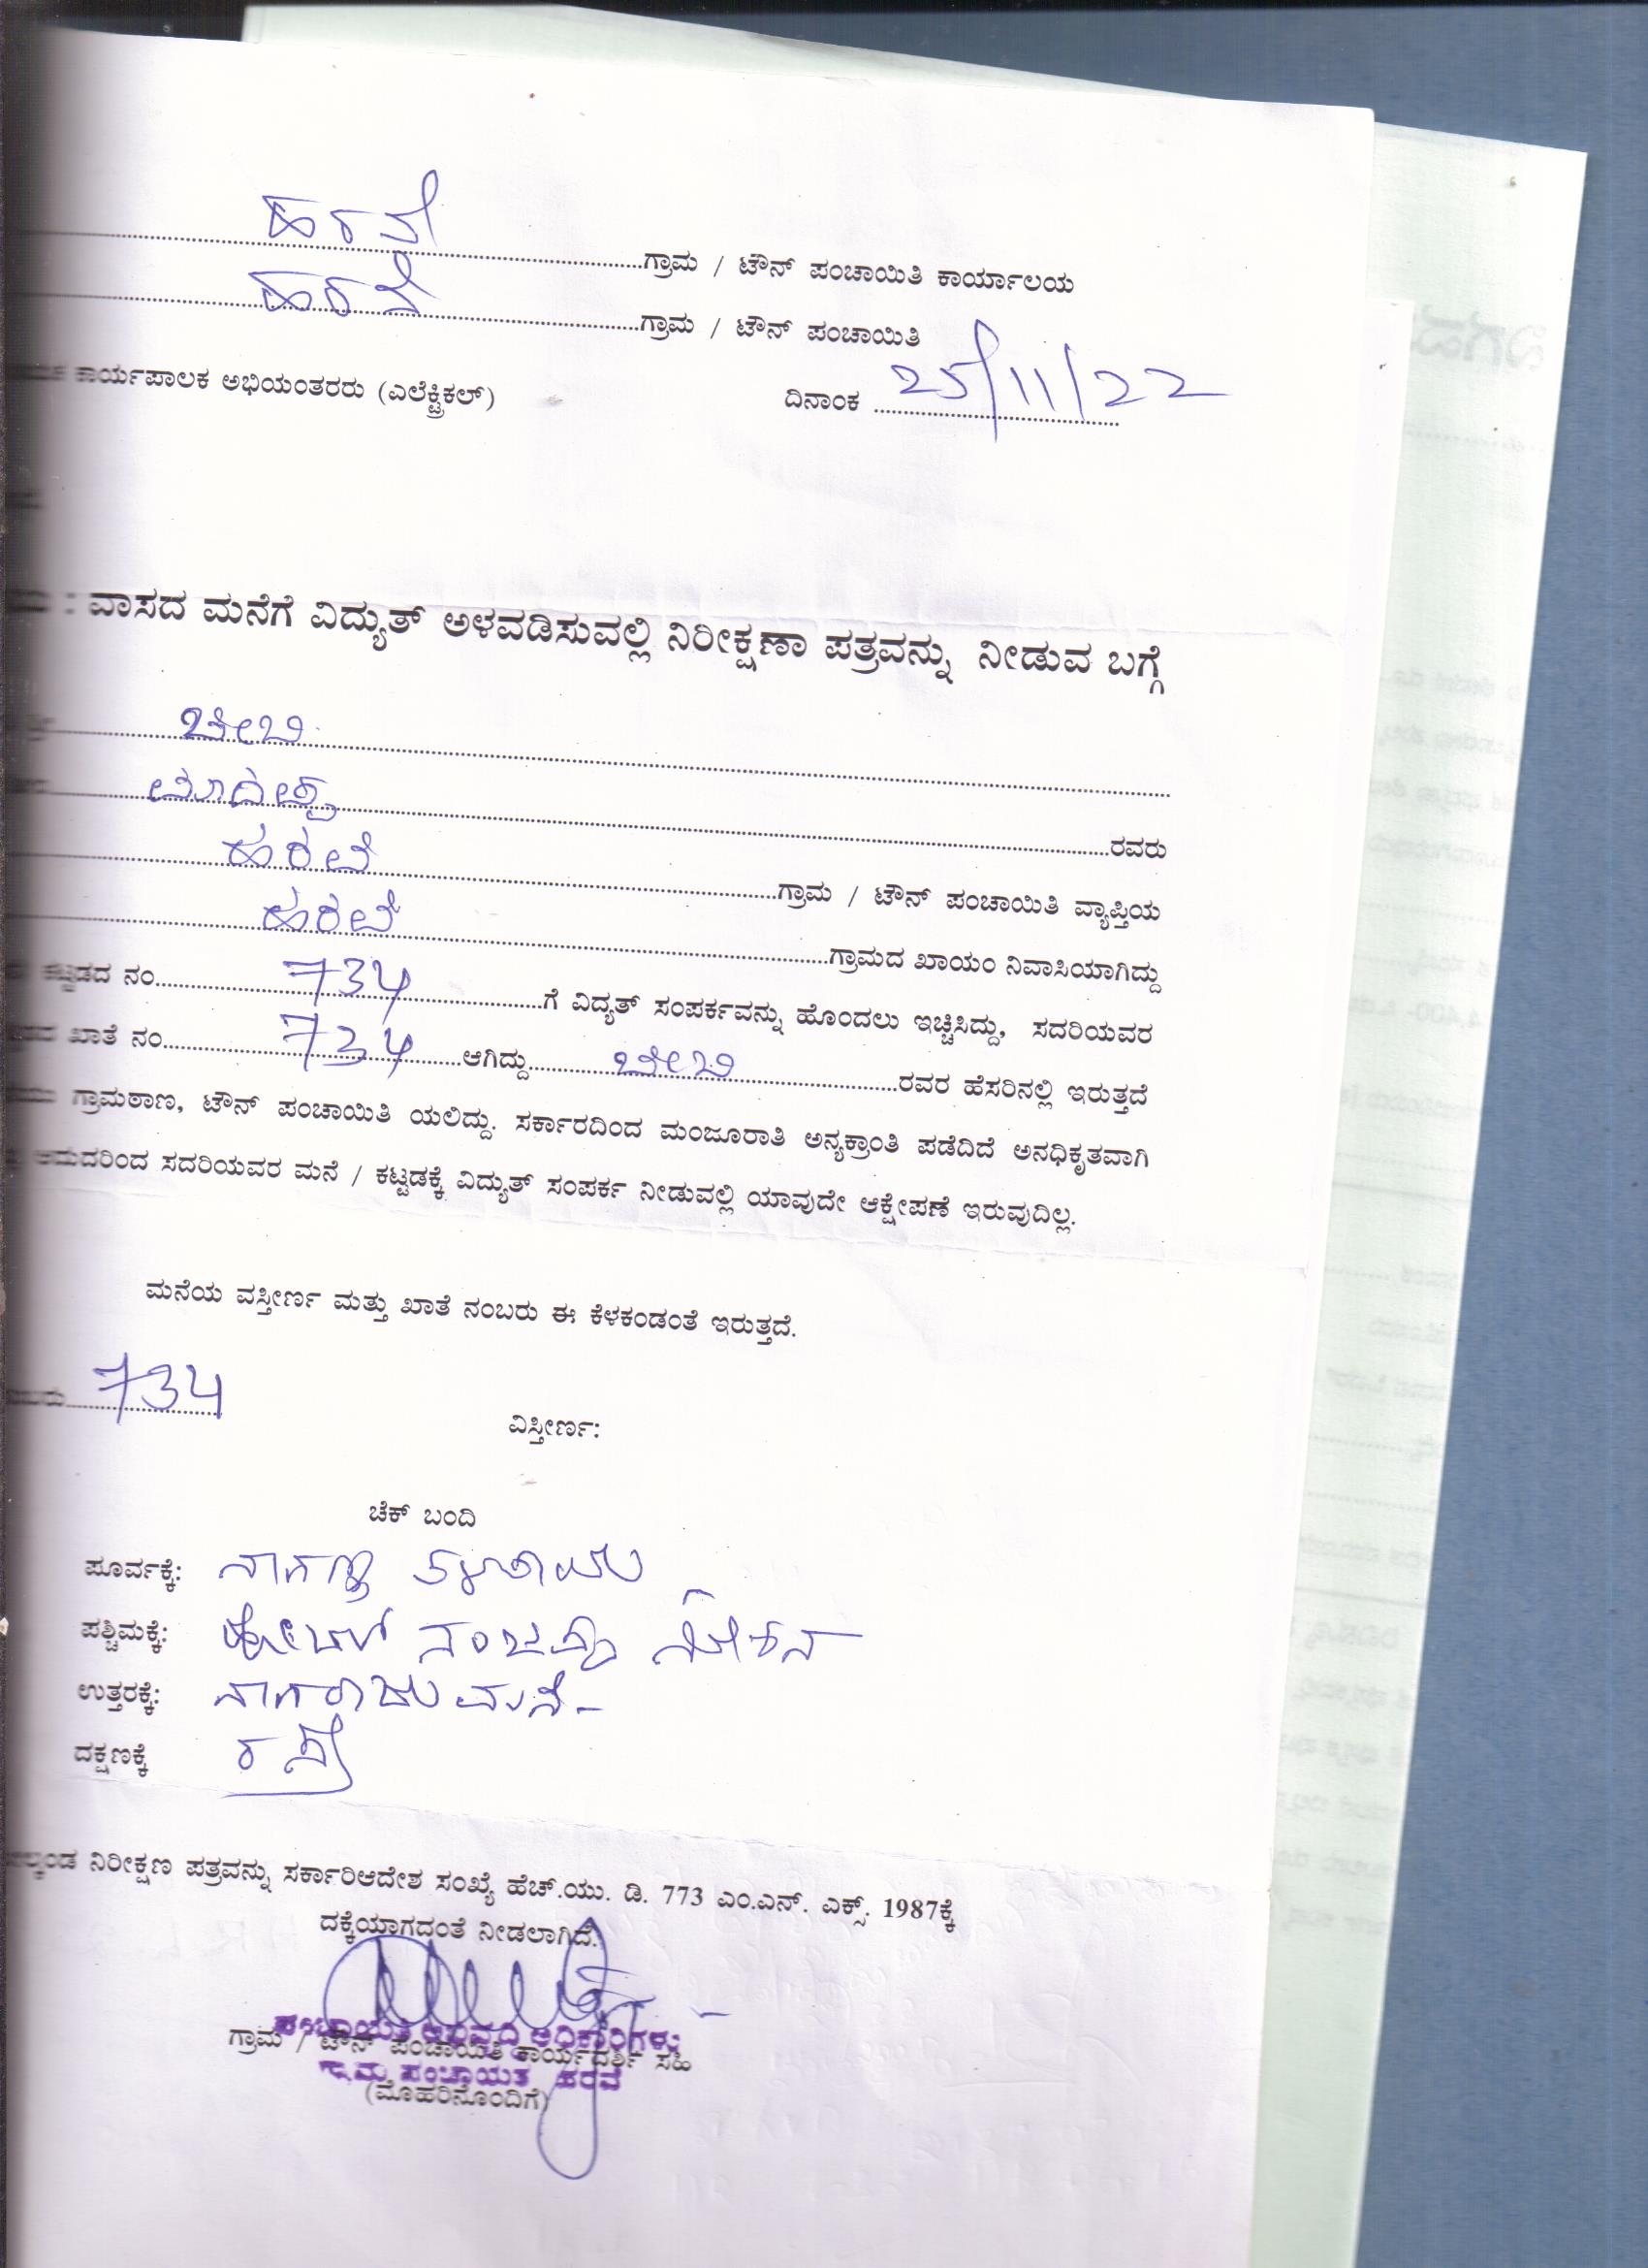 ಹರವೆ ..........ಗ್ರಾಮ / ಟೌನ್ ಪಂಚಾಯಿತಿ ಕಾರ್ಯಾಲಯ
ಹರವೆ ..........ಗ್ರಾಮ / ಟೌನ್ ಪಂಚಾಯಿತಿ
ಕಾರ್ಯಪಾಲಕ ಅಭಿಯಂತರರು (ಎಲೆಕ್ಟ್ರಿಕಲ್) ದಿನಾಂಕ 25/11/22
: ವಾಸದ ಮನೆಗೆ ವಿದ್ಯುತ್ ಅಳವಡಿಸುವಲ್ಲಿ ನಿರೀಕ್ಷಣಾ ಪತ್ರವನ್ನು ನೀಡುವ ಬಗ್ಗೆ
ಬೇಬಿ
ಮಾದಪ್ಪ ..........ರವರು
ಹರವೆ ..........ಗ್ರಾಮ / ಟೌನ್ ಪಂಚಾಯಿತಿ ವ್ಯಾಪ್ತಿಯ
ಹರವೆ ..........ಗ್ರಾಮದ ಖಾಯಂ ನಿವಾಸಿಯಾಗಿದ್ದು
ಕಟ್ಟಡದ ನಂ..........734..........ಗೆ ವಿದ್ಯತ್ ಸಂಪರ್ಕವನ್ನು ಹೊಂದಲು ಇಚ್ಚಿಸಿದ್ದು, ಸದರಿಯವರ
ಖಾತೆ ನಂ..........734..........ಆಗಿದ್ದು..........ಬೇಬಿ..........ರವರ ಹೆಸರಿನಲ್ಲಿ ಇರುತ್ತದೆ
ಗ್ರಾಮಠಾಣ, ಟೌನ್ ಪಂಚಾಯಿತಿ ಯಲಿದ್ದು. ಸರ್ಕಾರದಿಂದ ಮಂಜೂರಾತಿ ಅನ್ಯಕ್ರಾಂತಿ ಪಡೆದಿದೆ ಅನಧಿಕೃತವಾಗಿ
ಆದುದರಿಂದ ಸದರಿಯವರ ಮನೆ / ಕಟ್ಟಡಕ್ಕೆ ವಿದ್ಯುತ್ ಸಂಪರ್ಕ ನೀಡುವಲ್ಲಿ ಯಾವುದೇ ಆಕ್ಷೇಪಣೆ ಇರುವುದಿಲ್ಲ.
ಮನೆಯ ವಸ್ತೀರ್ಣ ಮತ್ತು ಖಾತೆ ನಂಬರು ಈ ಕೆಳಕಂಡಂತೆ ಇರುತ್ತದೆ.
734 ವಿಸ್ತೀರ್ಣ:
ಚೆಕ್ ಬಂದಿ
ಪೂರ್ವಕ್ಕೆ: ನಾಗಣ್ಣ
ಪಶ್ಚಿಮಕ್ಕೆ: ಹೋಟೆಲ್ ನಂಜಪ್ಪ
ಉತ್ತರಕ್ಕೆ: ನಾಗರಾಜು ಮನೆ -
ದಕ್ಷಣಕ್ಕೆ ರಸ್ತೆ
ನಿರೀಕ್ಷಣ ಪತ್ರವನ್ನು ಸರ್ಕಾರಿಆದೇಶ ಸಂಖ್ಯೆ ಹೆಚ್.ಯು. ಡಿ. 773 ಎಂ.ಎನ್. ಎಕ್ಸ್. 1987ಕ್ಕೆ
ದಕ್ಕೆಯಾಗದಂತೆ ನೀಡಲಾಗಿದೆ.
ಪಂಚಾಯತಿ ಅಭಿವೃದ್ಧಿ ಅಧಿಕಾರಿಗಳು
ಗ್ರಾಮ / ಟೌನ್ ಪಂಚಾಯಿತಿ ಕಾರ್ಯದರ್ಶಿ ಸಹಿ
ಗ್ರಾಮ ಪಂಚಾಯತಿ ಹರವೆ
(ಮೊಹರಿನೊಂದಿಗೆ)